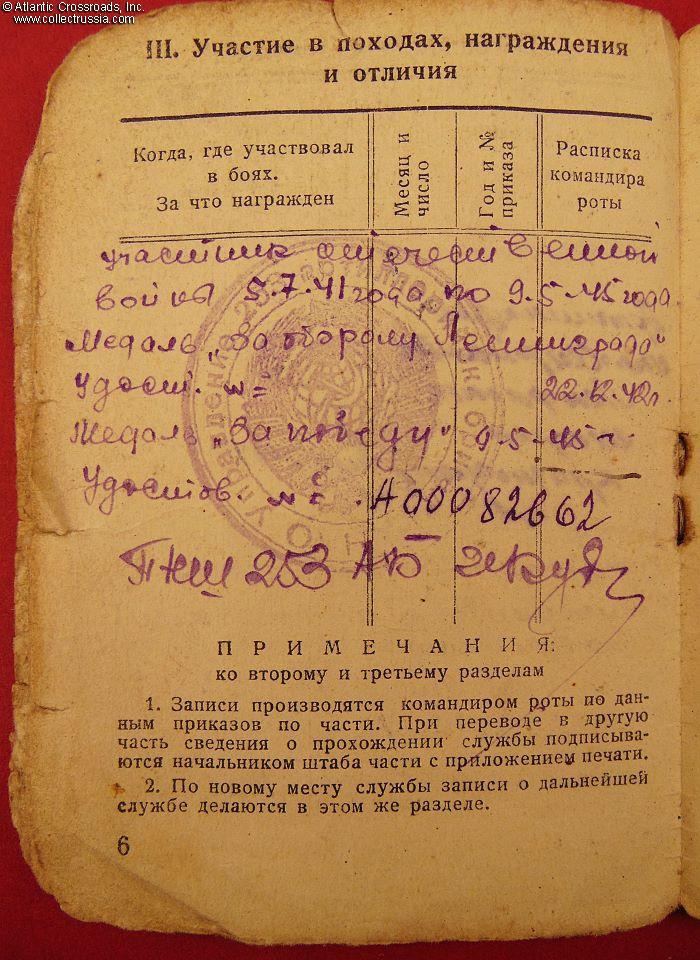 © Atlantic Crossroads, Inc.
www.collectrussia.com
III. Участие в походах, награждения
и отличия
Когда, где участвовал
в боях.
За что награжден
Месяц и
число
Год и №
приказа
Расписка
командира
роты
участник отечественной
войны 5.7.41 года по 9.5.45 года
Медаль „За оборону Ленинграда“
Удост. № 22.12.42г.
Медаль „За победу“ 9.5.45 г
Удостов. № А 0082662
ПНШ 253 АБ
ПРИМЕЧАНИЯ:
ко второму и третьему разделам
1. Записи производятся командиром роты по дан-
ным приказов по части. При переводе в другую
часть сведения о прохождении службы подписыва-
ются начальником штаба части с приложением печати.
2. По новому месту службы записи о дальнейшей
службе делаются в этом же разделе.
6